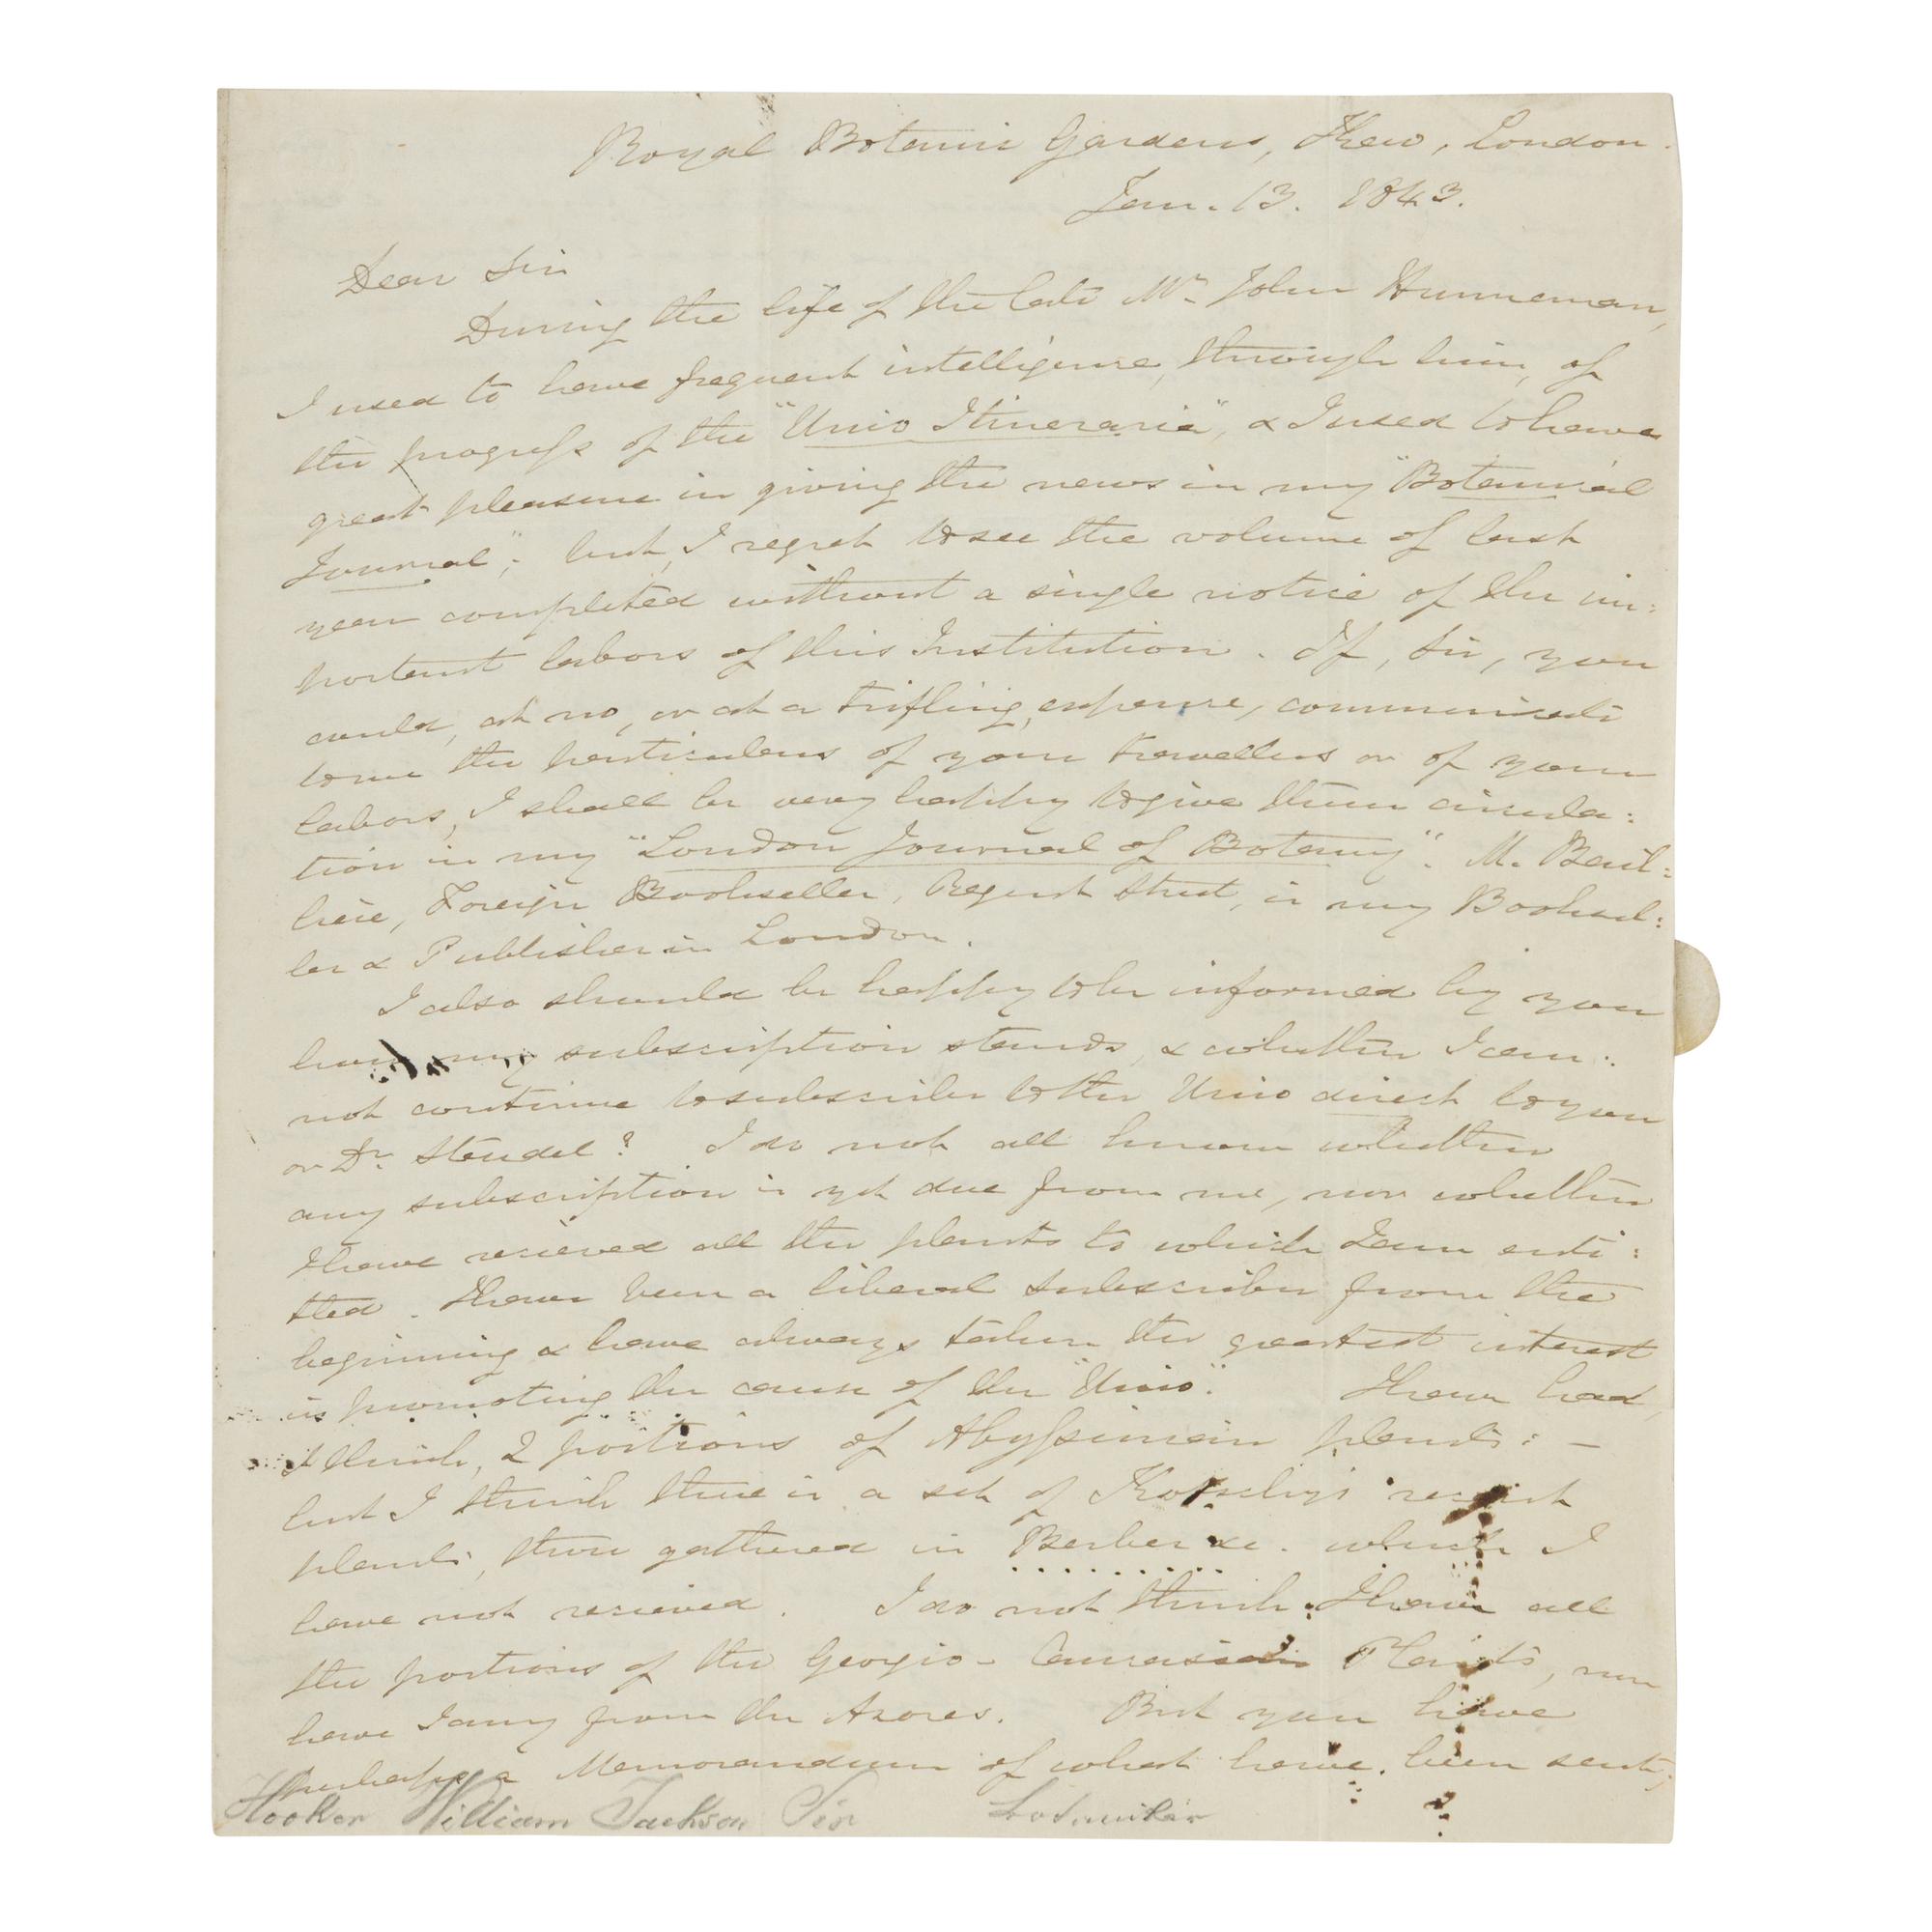 Royal Botanic Gardens, Kew, London.
Jan. 13. 1843.
Dear Sir
During the life of the late Mr. John Hunneman,
I used to have frequent intelligence, through him, of
the progress of the "Unio Itineraria", & I used to have
great pleasure in giving the news in my "Botanical
Journal"; but, I regret to see the volume of last
year completed without a single notice of the im:
portant labors of this Institution. If, Sir, you
could, at no, or at a trifling, expense, communicate
to me the particulars of your travellers or of your
labors, I shall be very happy to give them circula:
tion in my "London Journal of Botany". M. Bail:
liere, Foreign Bookseller, Regent Street, is my Booksel:
ler & Publisher in London.
I also should be happy to be informed by you
how my subscription stands, & whether I can:
not continue to subscribe to the Unio direct to you
or Dr. Steudel? I do not all know whether
any subscription is yet due from me, nor whether
I have recieved all the plants to which I am enti:
tled. I have been a liberal subscriber from the
beginning & have always taken the greatest interest
in promoting the cause of the "Unio". I have had,
I think, 2 portions of Abyssinian plants: –
but I think there is a set of Kotschy's recent
plants, those gathered in which I
have not recieved. I do not think I have all
the portions of the Georgio-Caucasian Plants, nor
have I any from the Azores. But you have
perhaps a Memorandum of what have been sent;
Hooker William Jackson Sir Botaniker